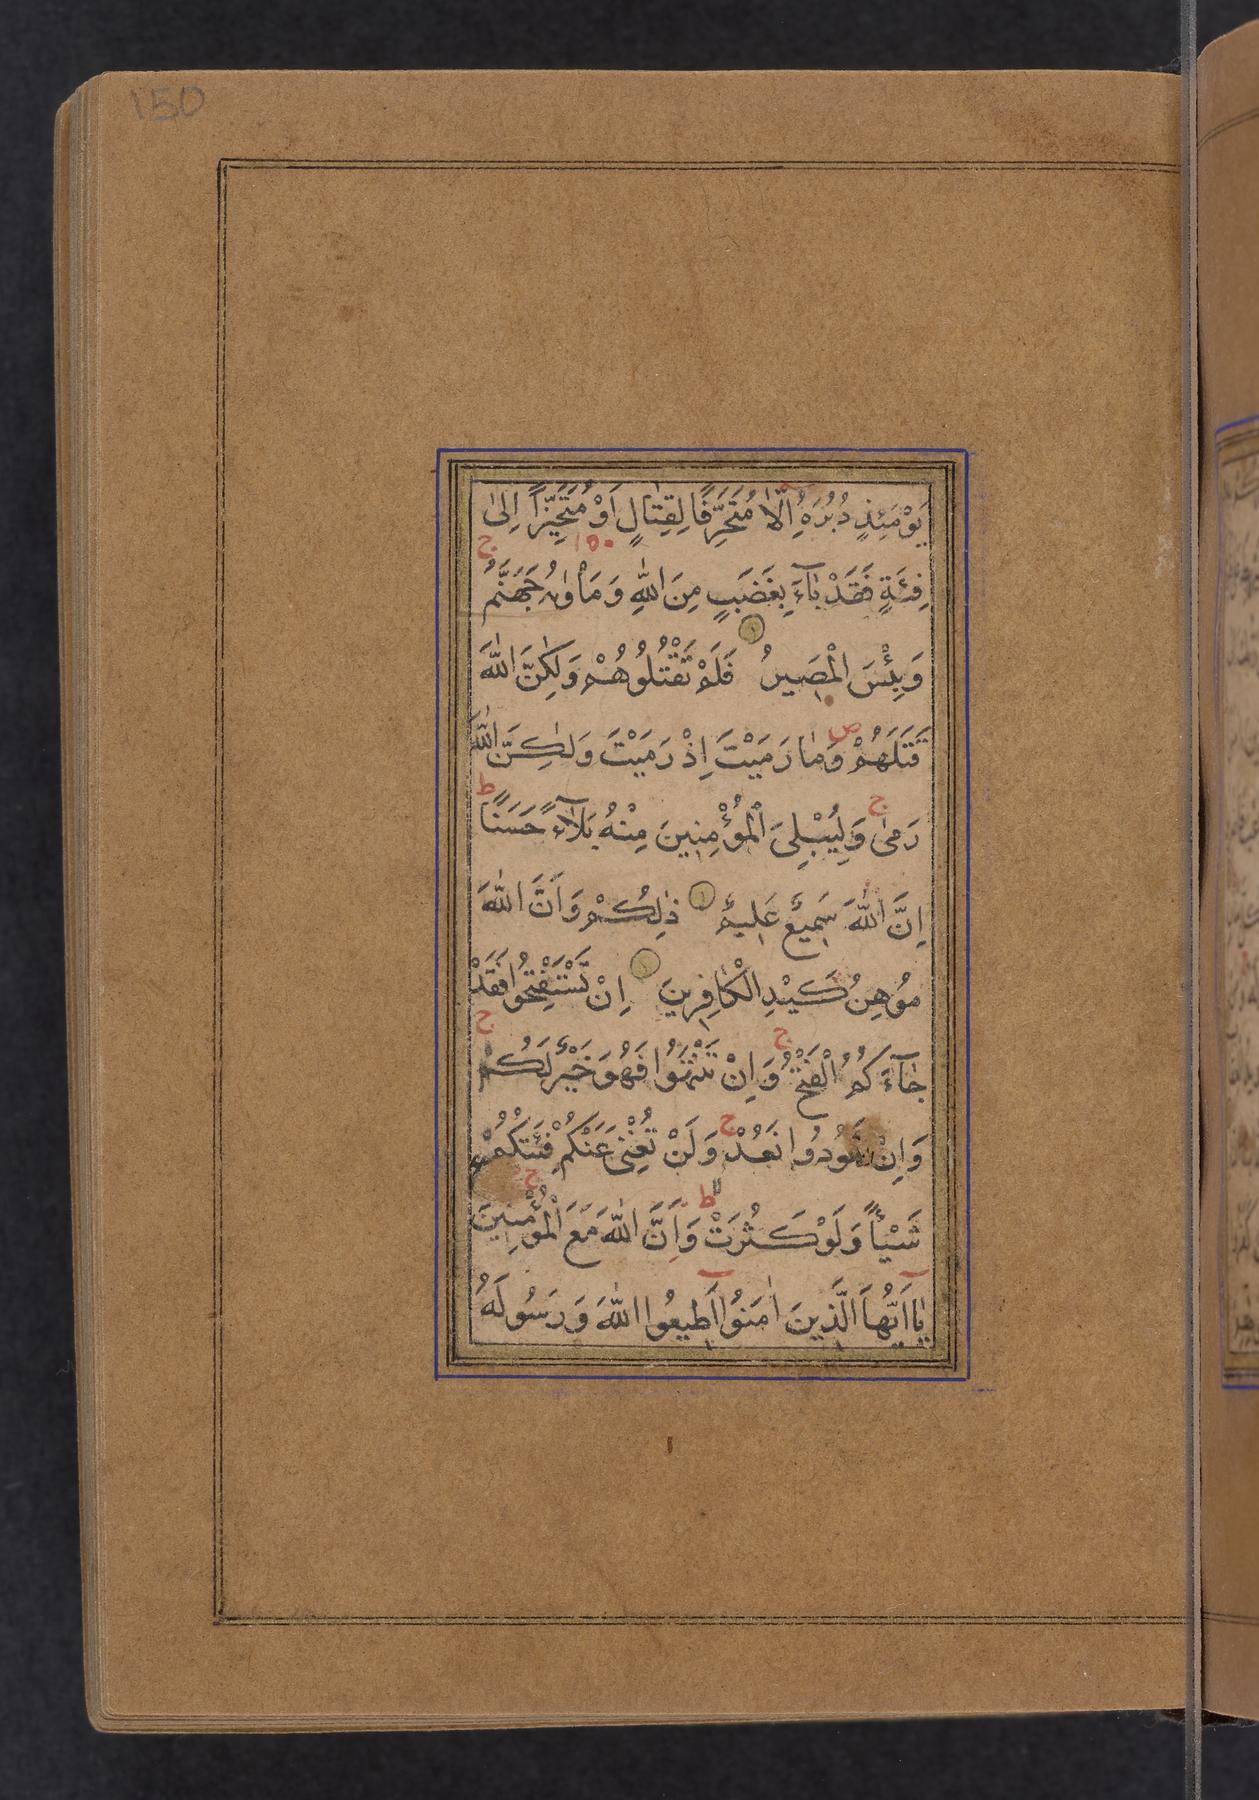 150
يَوْمَئِذٍ دُبُرَهُ اِلَّا مُتَحَرِّفًا لِقِتَالٍ اَوْ مُتَحَيِّزًا اِلٰى
١٥٠ ج
فِئَةٍ فَقَدْ بَآءَ بِغَضَبٍ مِنَ اللّٰهِ وَمَاْوٰيهُ جَهَنَّمُ
وَبِئْسَ الْمَصِيرُ فَلَمْ تَقْتُلُوهُمْ وَلٰكِنَّ اللّٰهَ
ص
قَتَلَهُمْ وَمَا رَمَيْتَ اِذْ رَمَيْتَ وَلٰكِنَّ اللّٰهَ
ج ط
رَمٰى وَلِيُبْلِىَ الْمُؤْمِنِينَ مِنْهُ بَلَآءً حَسَنًا
اِنَّ اللّٰهَ سَمِيعٌ عَلِيمٌ ذٰلِكُمْ وَاَنَّ اللّٰهَ
مُوهِنُ كَيْدِ الْكَافِرِينَ اِنْ تَسْتَفْتِحُوا فَقَدْ
ج ج
جَآءَكُمُ الْفَتْحُ وَاِنْ تَنْتَهُوا فَهُوَ خَيْرٌ لَكُمْ
ج
وَاِنْ تَعُودُوا نَعُدْ وَلَنْ تُغْنِىَ عَنْكُمْ فِئَتُكُمْ
ط ج
شَيْـًٔا وَلَوْ كَثُرَتْ وَاَنَّ اللّٰهَ مَعَ الْمُؤْمِنِينَ
يَآ اَيُّهَا الَّذِينَ اٰمَنُوا اَطِيعُوا اللّٰهَ وَرَسُولَهُ